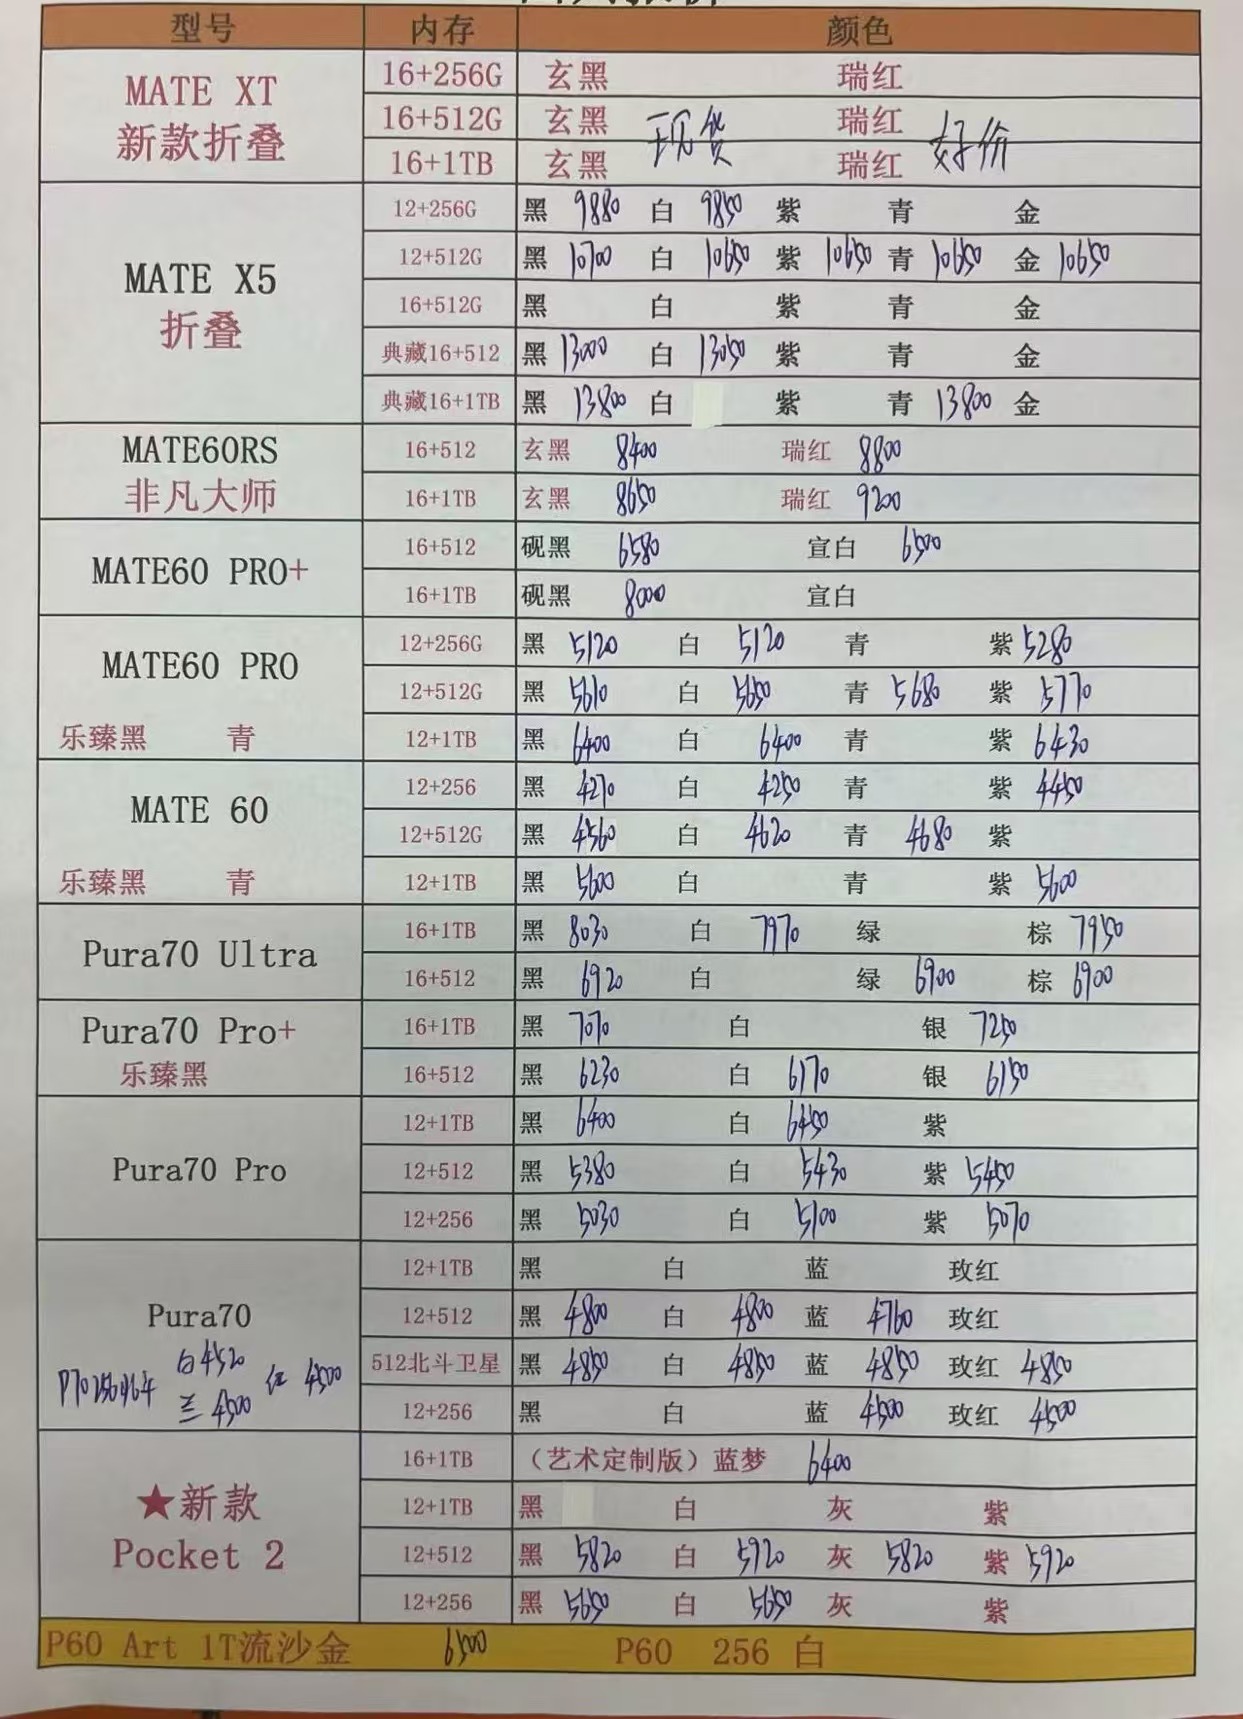 型号 内存 颜色
MATE XT 新款折叠
16+256G 玄黑 瑞红
16+512G 玄黑 现货 瑞红 好价
16+1TB 玄黑 瑞红
MATE X5 折叠
12+256G 黑 9880 白 9850 紫 青 金
12+512G 黑 10700 白 10650 紫 10650 青 10650 金 10650
16+512G 黑 白 紫 青 金
典藏16+512 黑 13000 白 13050 紫 青 金
典藏16+1TB 黑 13800 白 紫 青 13800 金
MATE60RS 非凡大师
16+512 玄黑 8400 瑞红 8800
16+1TB 玄黑 8650 瑞红 9200
MATE60 PRO+
16+512 砚黑 6580 宣白 6500
16+1TB 砚黑 8000 宣白
MATE60 PRO
乐臻黑 青
12+256G 黑 5120 白 5120 青 紫 5280
12+512G 黑 5610 白 5650 青 5680 紫 5770
12+1TB 黑 6400 白 6400 青 紫 6430
MATE 60
乐臻黑 青
12+256 黑 4270 白 4250 青 紫 4450
12+512G 黑 4560 白 4620 青 4680 紫
12+1TB 黑 5600 白 青 紫 5600
Pura70 Ultra
16+1TB 黑 8030 白 7970 绿 棕 7950
16+512 黑 6920 白 绿 6900 棕 6900
Pura70 Pro+
乐臻黑
16+1TB 黑 7070 白 银 7250
16+512 黑 6230 白 6170 银 6150
Pura70 Pro
12+1TB 黑 6400 白 6450 紫
12+512 黑 5380 白 5430 紫 5450
12+256 黑 5030 白 5100 紫 5070
Pura70
白4520
兰4500
红 4500
12+1TB 黑 白 蓝 玫红
12+512 黑 4800 白 4800 蓝 4760 玫红
512北斗卫星 黑 4850 白 4850 蓝 4850 玫红 4850
12+256 黑 白 蓝 4500 玫红 4500
★新款
Pocket 2
16+1TB （艺术定制版）蓝梦 6400
12+1TB 黑 白 灰 紫
12+512 黑 5820 白 5920 灰 5820 紫 5920
12+256 黑 5650 白 5650 灰 紫
P60 Art 1T流沙金 6500 P60 256 白